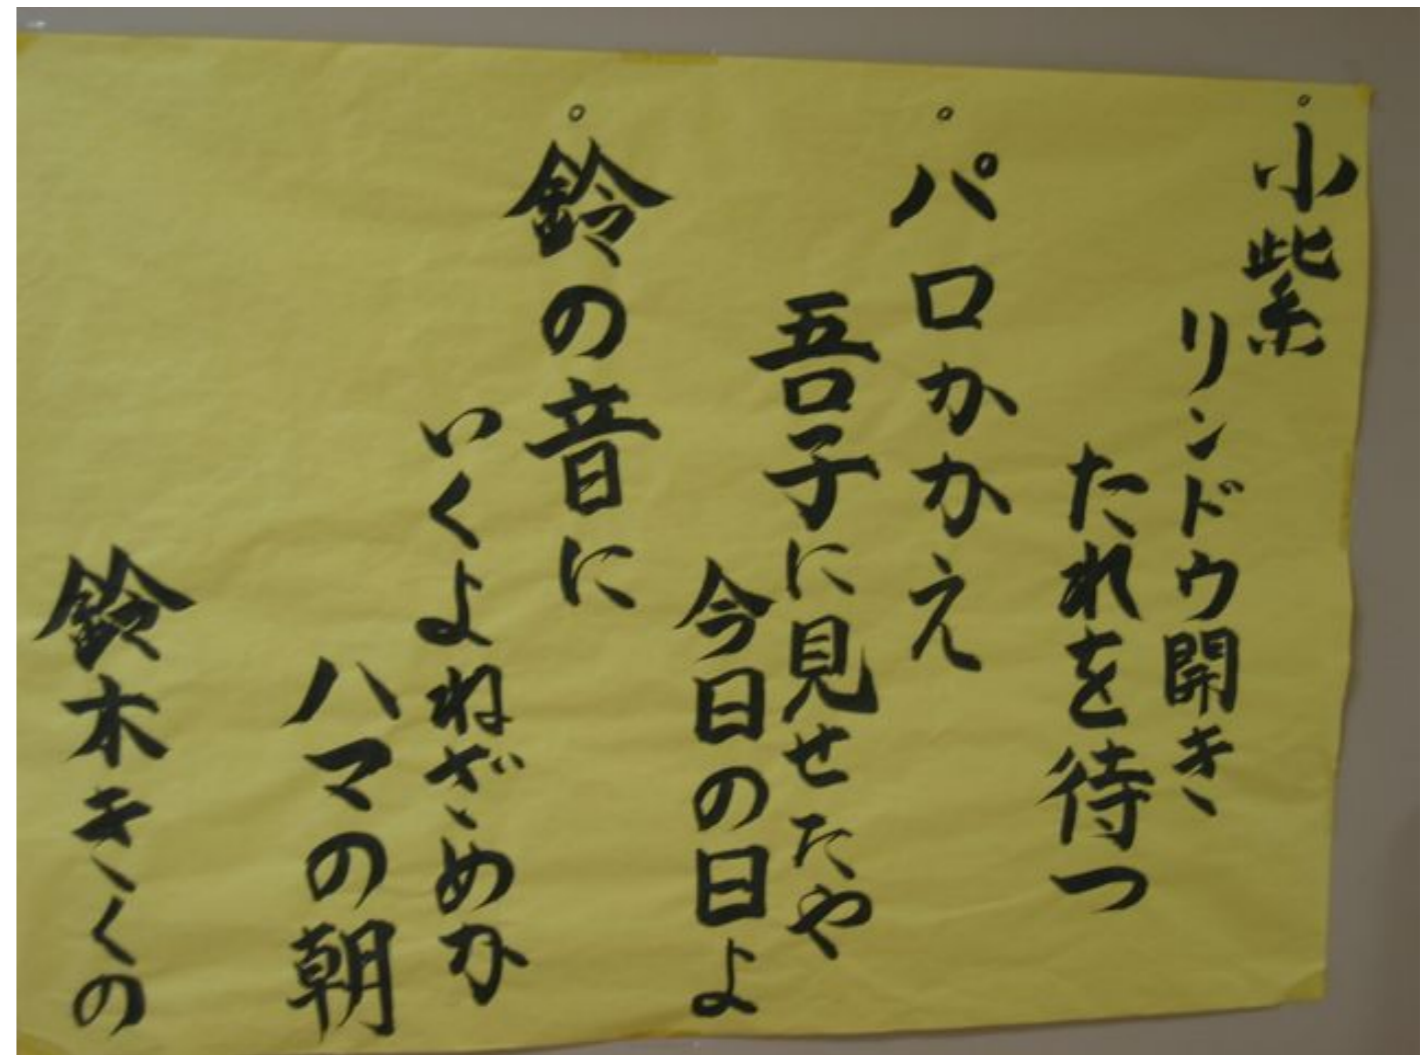 。小紫
リンドウ開き
たれを待つ
。パロかかえ
吾子に見せたや
今日の日よ
。鈴の音に
いくよねざめか
ハマの朝
鈴木きくの